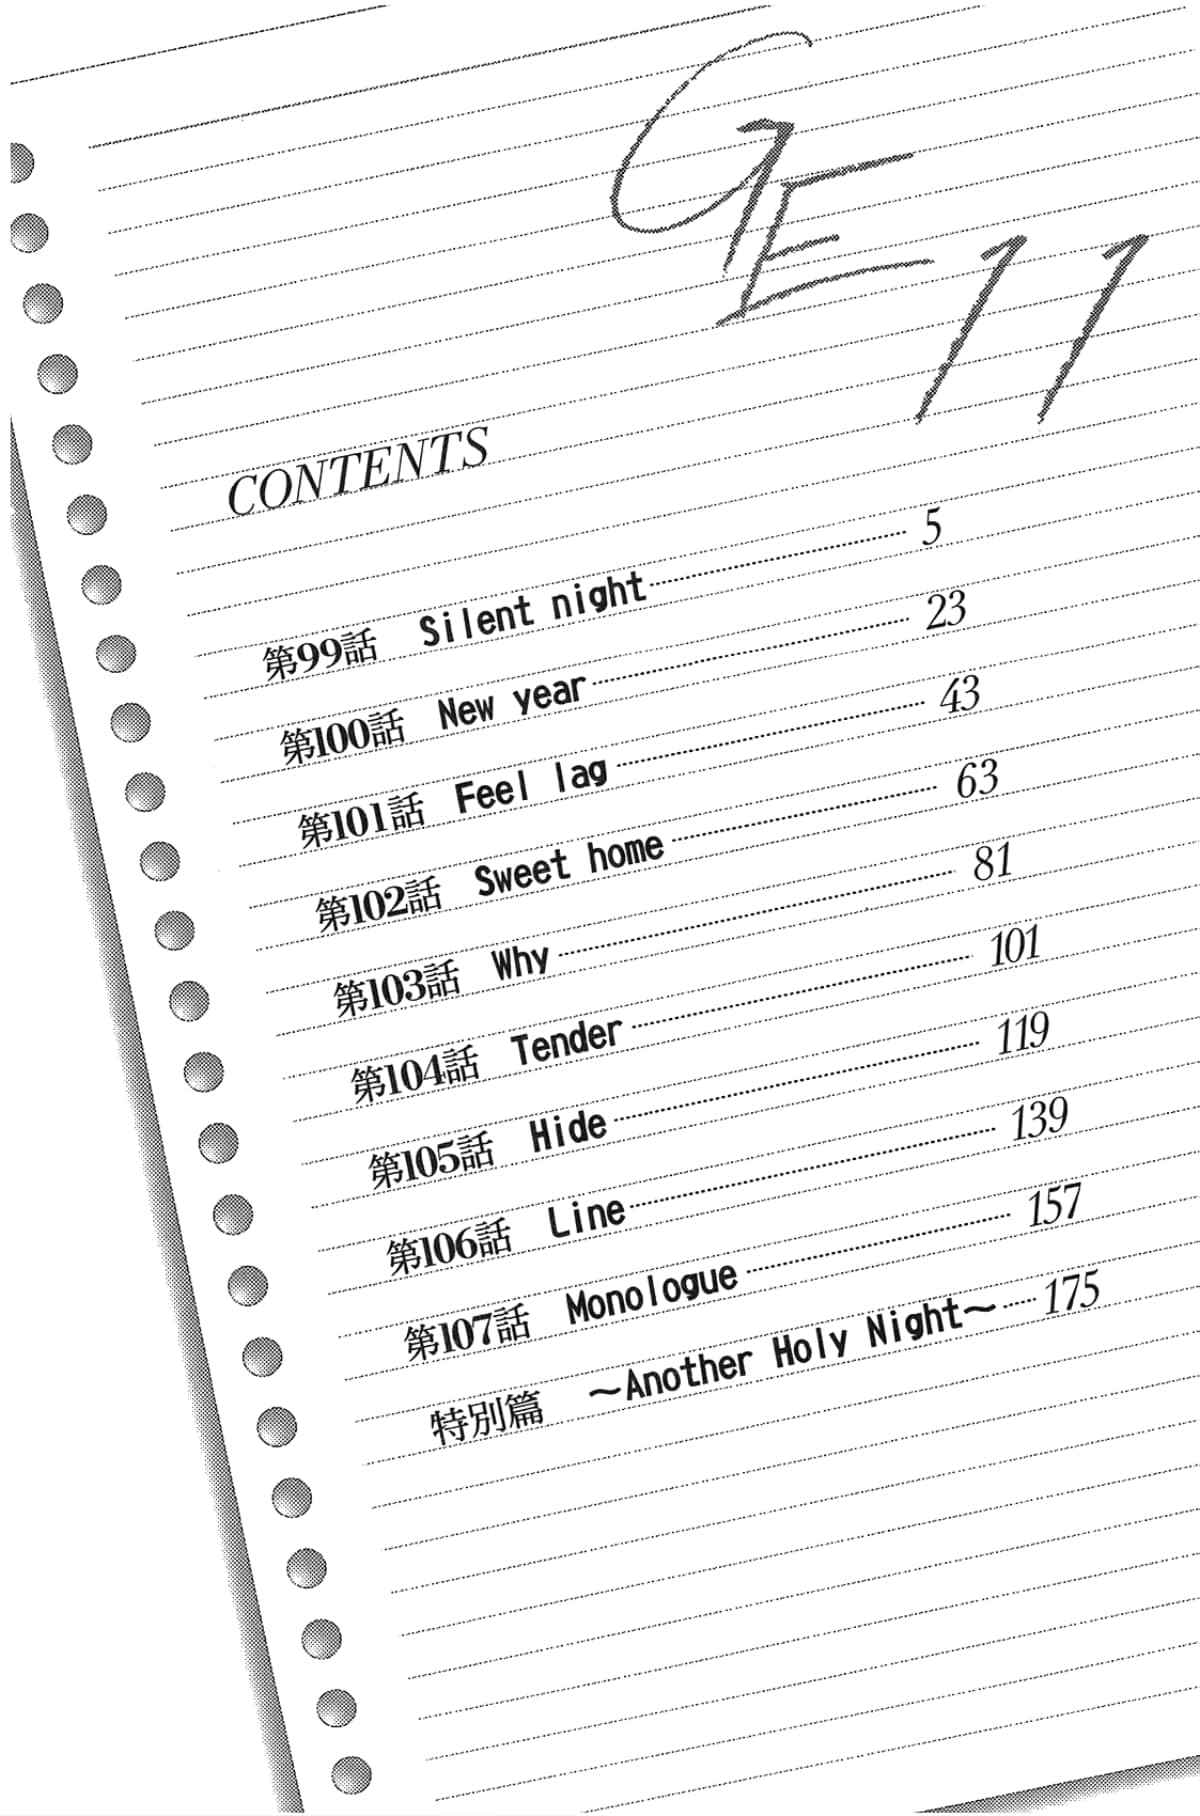 GE 11
CONTENTS
第99話 Silent night 5
第100話 New year 23
第101話 Feel lag 43
第102話 Sweet home 63
第103話 Why 81
第104話 Tender 101
第105話 Hide 119
第106話 Line 139
第107話 Monologue 157
特別篇 〜Another Holy Night〜 175